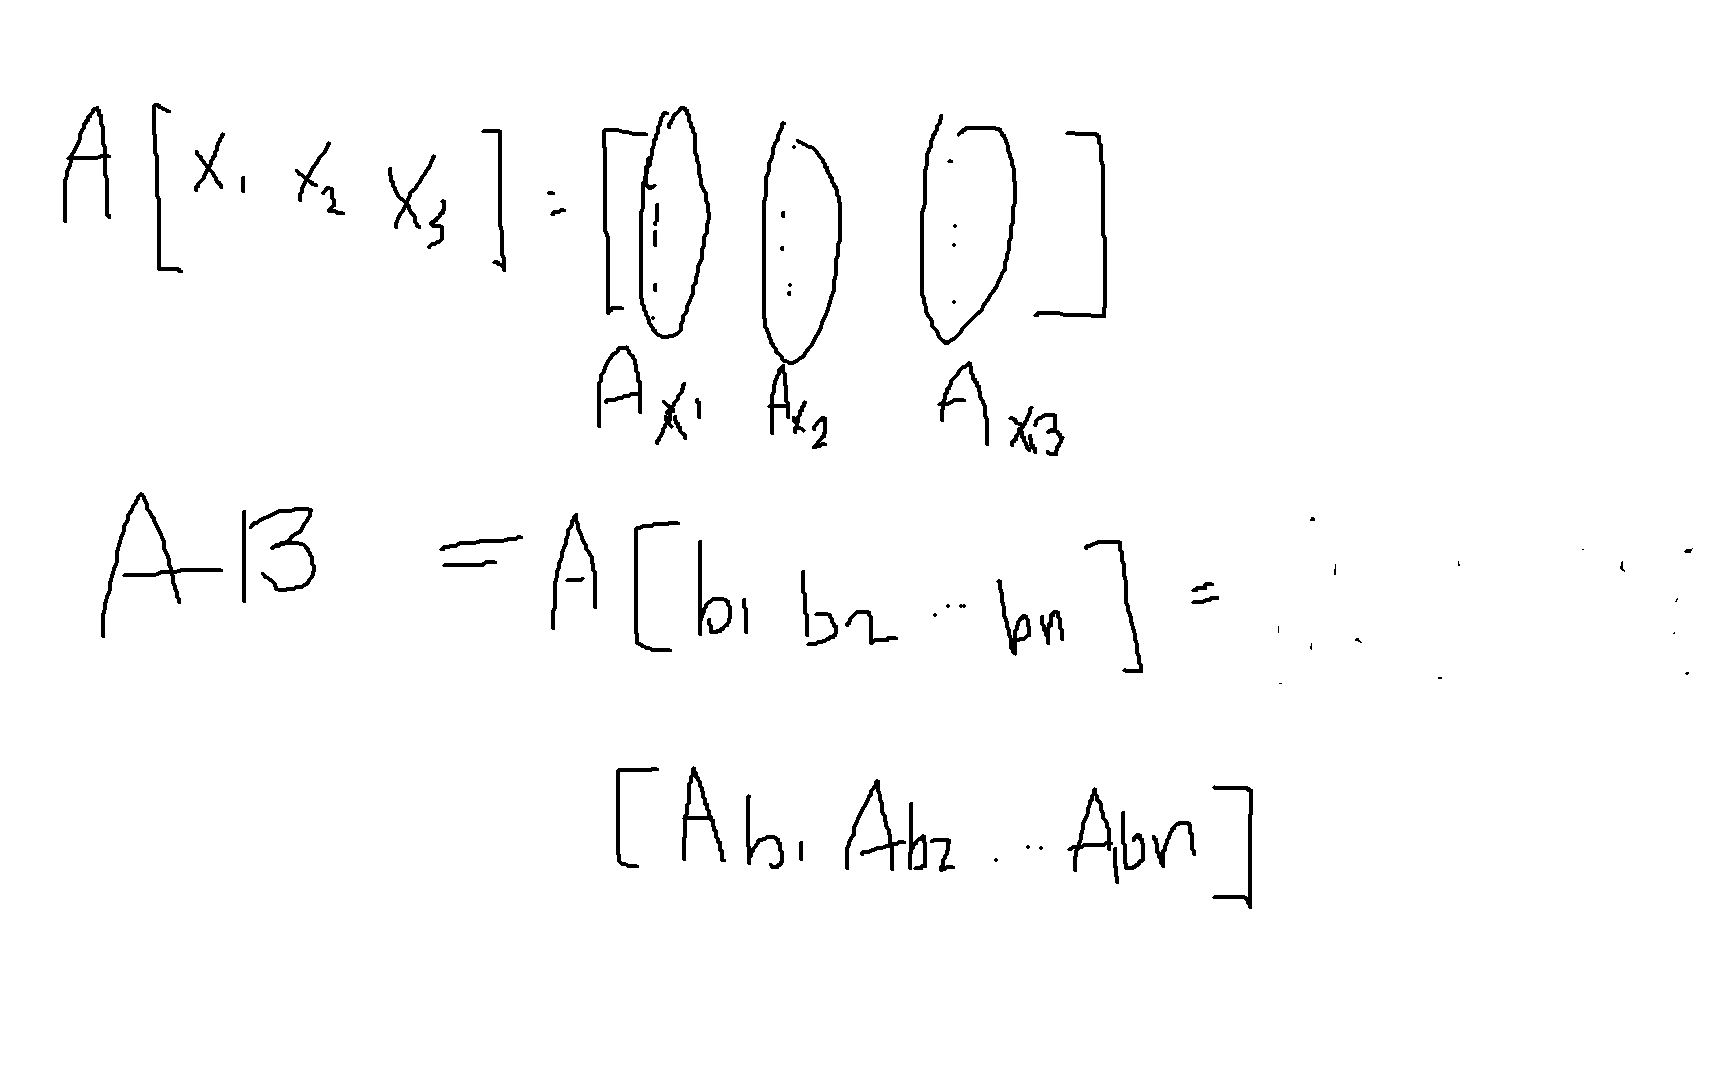 A [ x1 x2 x3 ] = [ ⋮ ⋮ ⋮ ]
Ax1 Ax2 Ax3
AB = A [ b1 b2 ... bn ] =
[ Ab1 Ab2 ... Abn ]